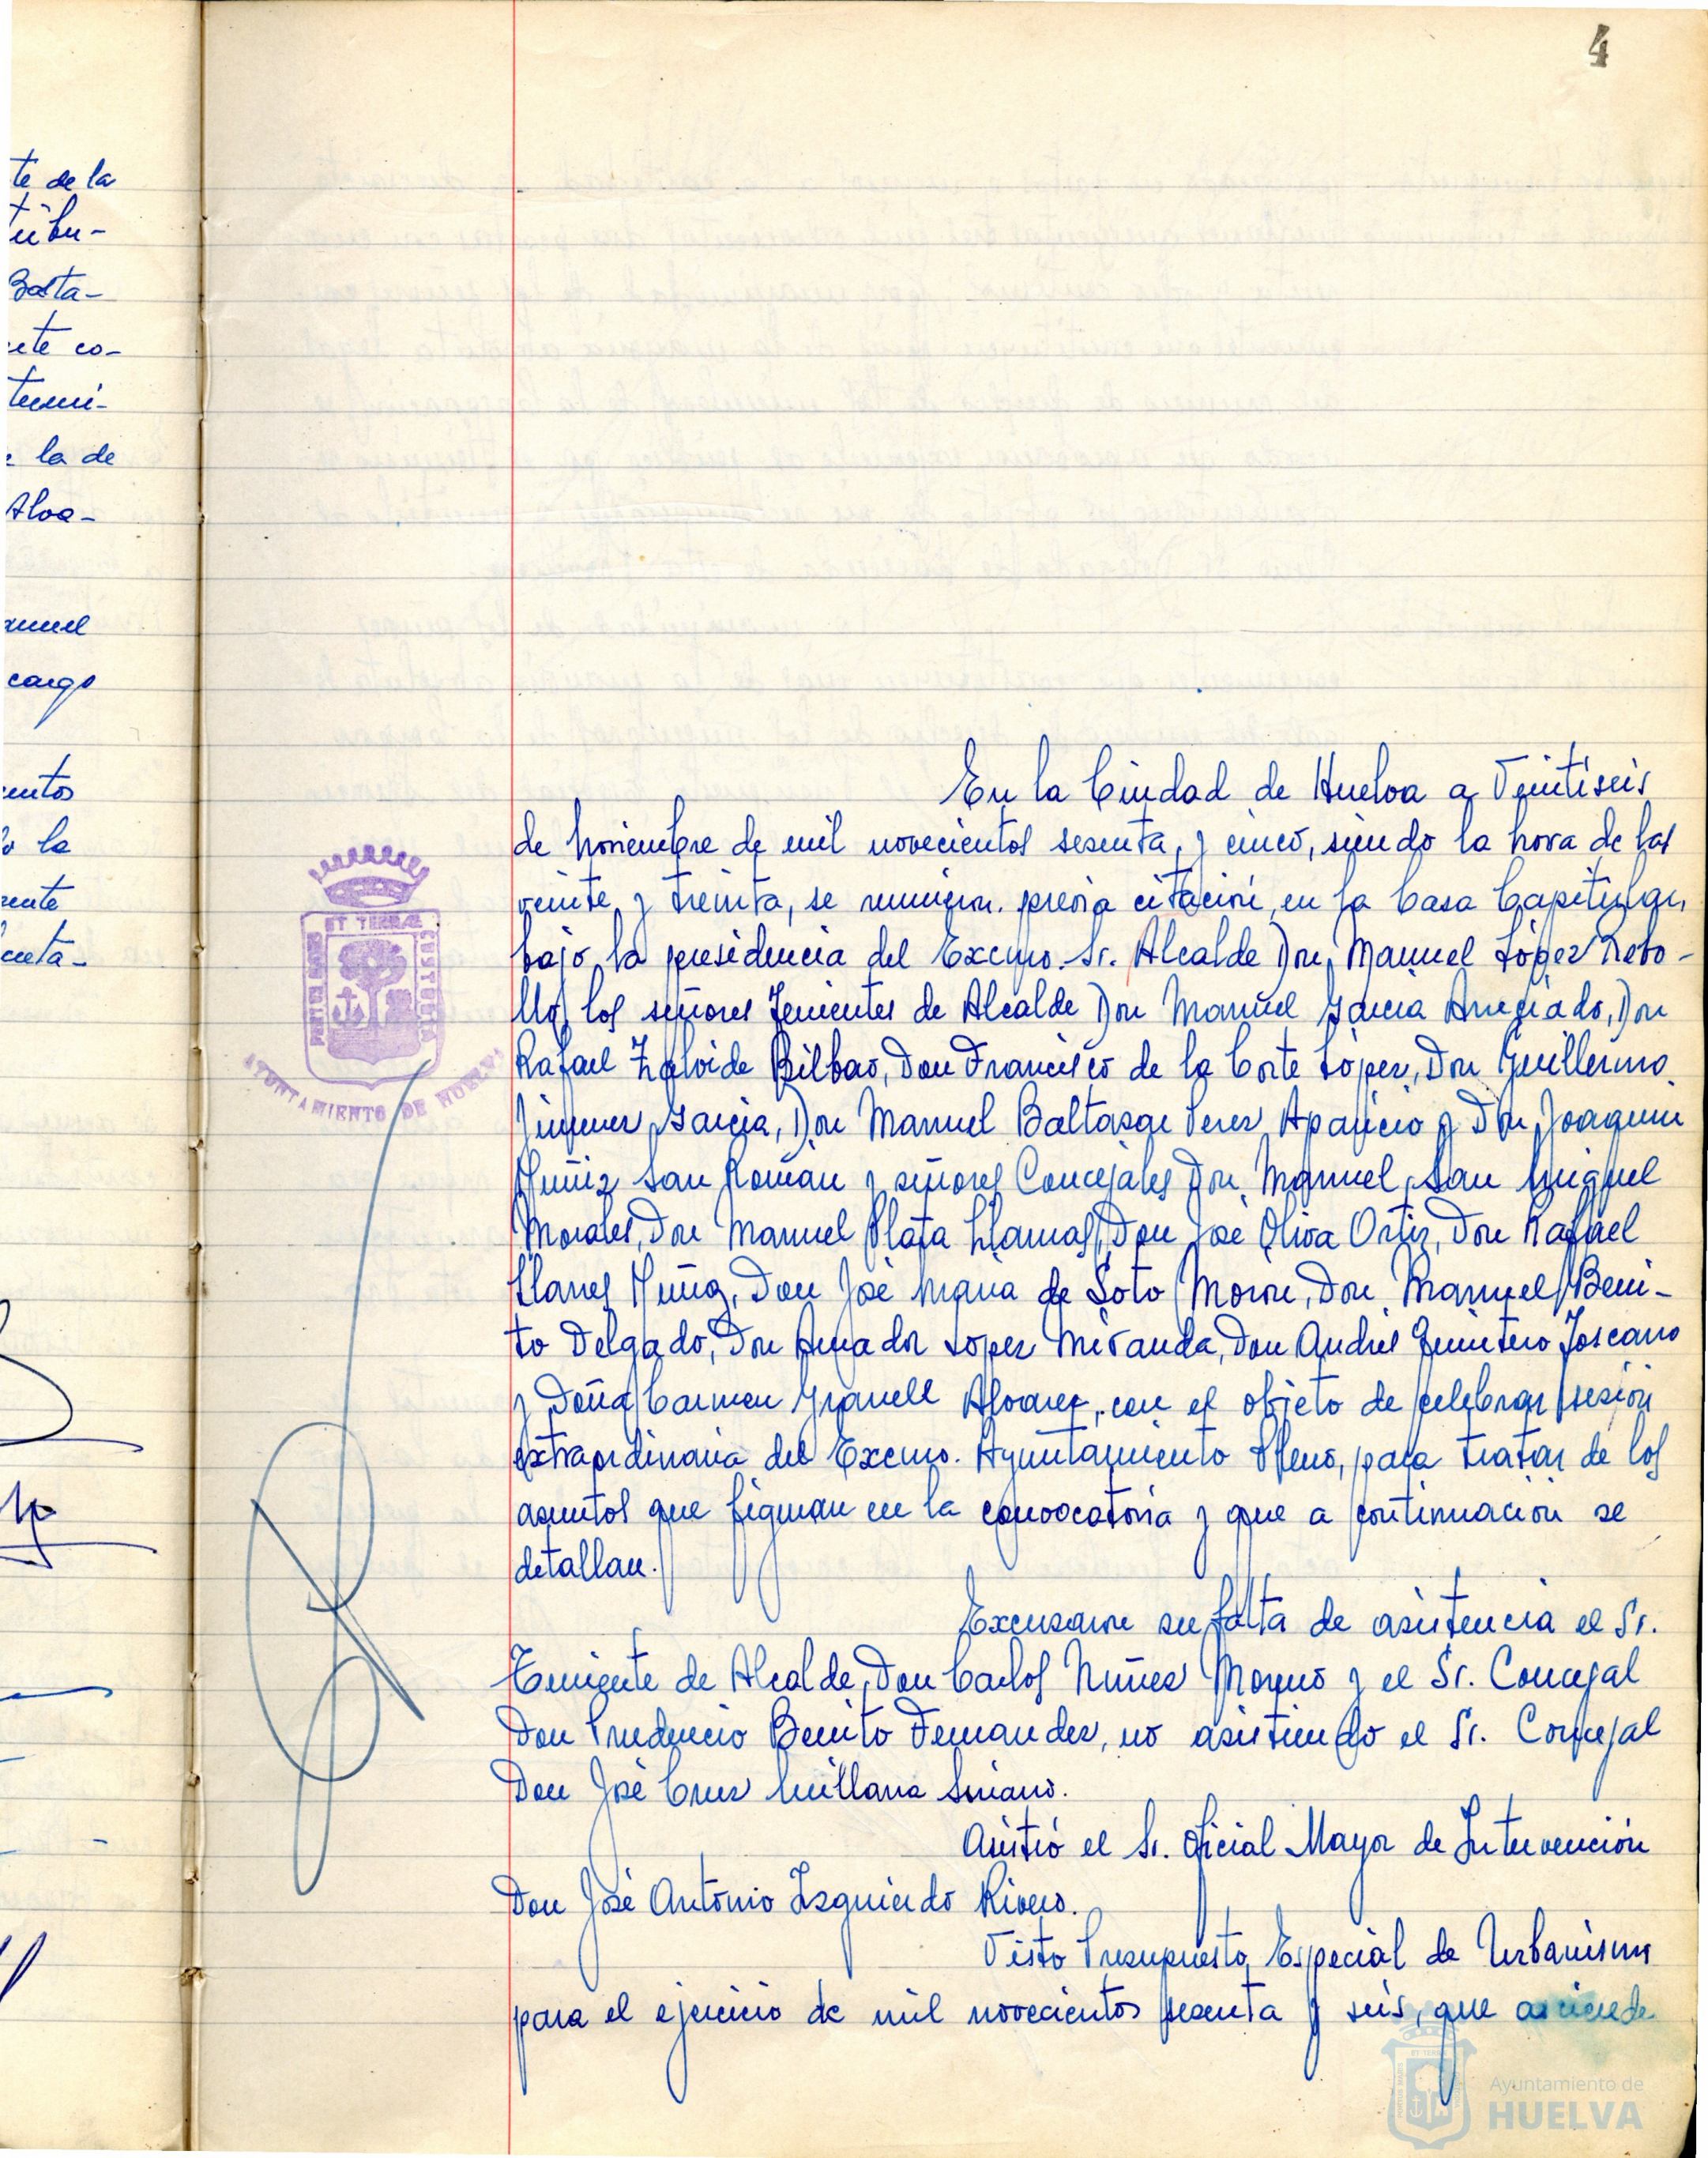 4
te de la
tribu-
Balta-
ente co-
termi-
e la de
Alva-
anuel
cargo
entos
o la
ente
centa-
En la Ciudad de Huelva a Veintiseis
de Noviembre de mil novecientos sesenta y cinco, siendo la hora de las
veinte y treinta, se reunieron. previa citación, en la Casa Capitular,
bajo la presidencia del Excmo. Sr. Alcalde Don Manuel López Rebo-
llo, los señores Tenientes de Alcalde Don Manuel García Anegiado, Don
Rafael Zalvide Bilbao, Don Francisco de la Corte López, Don Guillermo
Jimenez García, Don Manuel Baltasar Perez Aparicio y Don Joaquin
Muñiz San Román y señores Concejales Don Manuel San Miguel
Morales, Don Manuel Plata Llamas, Don José Oliva Ortiz, Don Rafael
Llanes Muñoz, Don José María de Soto Morón, Don Manuel Beni-
to Delgado, Don Amador López Miranda, Don Andrés Quintero Toscano
y Doña Carmen Granell Alvarez, con el objeto de celebrar sesión
extraordinaria del Excmo. Ayuntamiento Pleno, para tratar de los
asuntos que figuran en la convocatoria y que a continuación se
detallan.
Excusaron su falta de asistencia el Sr.
Teniente de Alcalde, Don Carlos Núñez Moreno y el Sr. Concejal
Don Prudencio Benito Fernandez, no asistiendo el Sr. Concejal
Don José Cruz Millana Soriano.
Asistió el Sr. Oficial Mayor de Intervención
Don José Antonio Izquierdo Rivero.
Visto Presupuesto Especial de Urbanismo
para el ejercicio de mil novecientos sesenta y seis, que asciende
PORTUS MARIS ET TERRAE CUSTODIA
AYUNTAMIENTO DE HUELVA
Ayuntamiento de
HUELVA